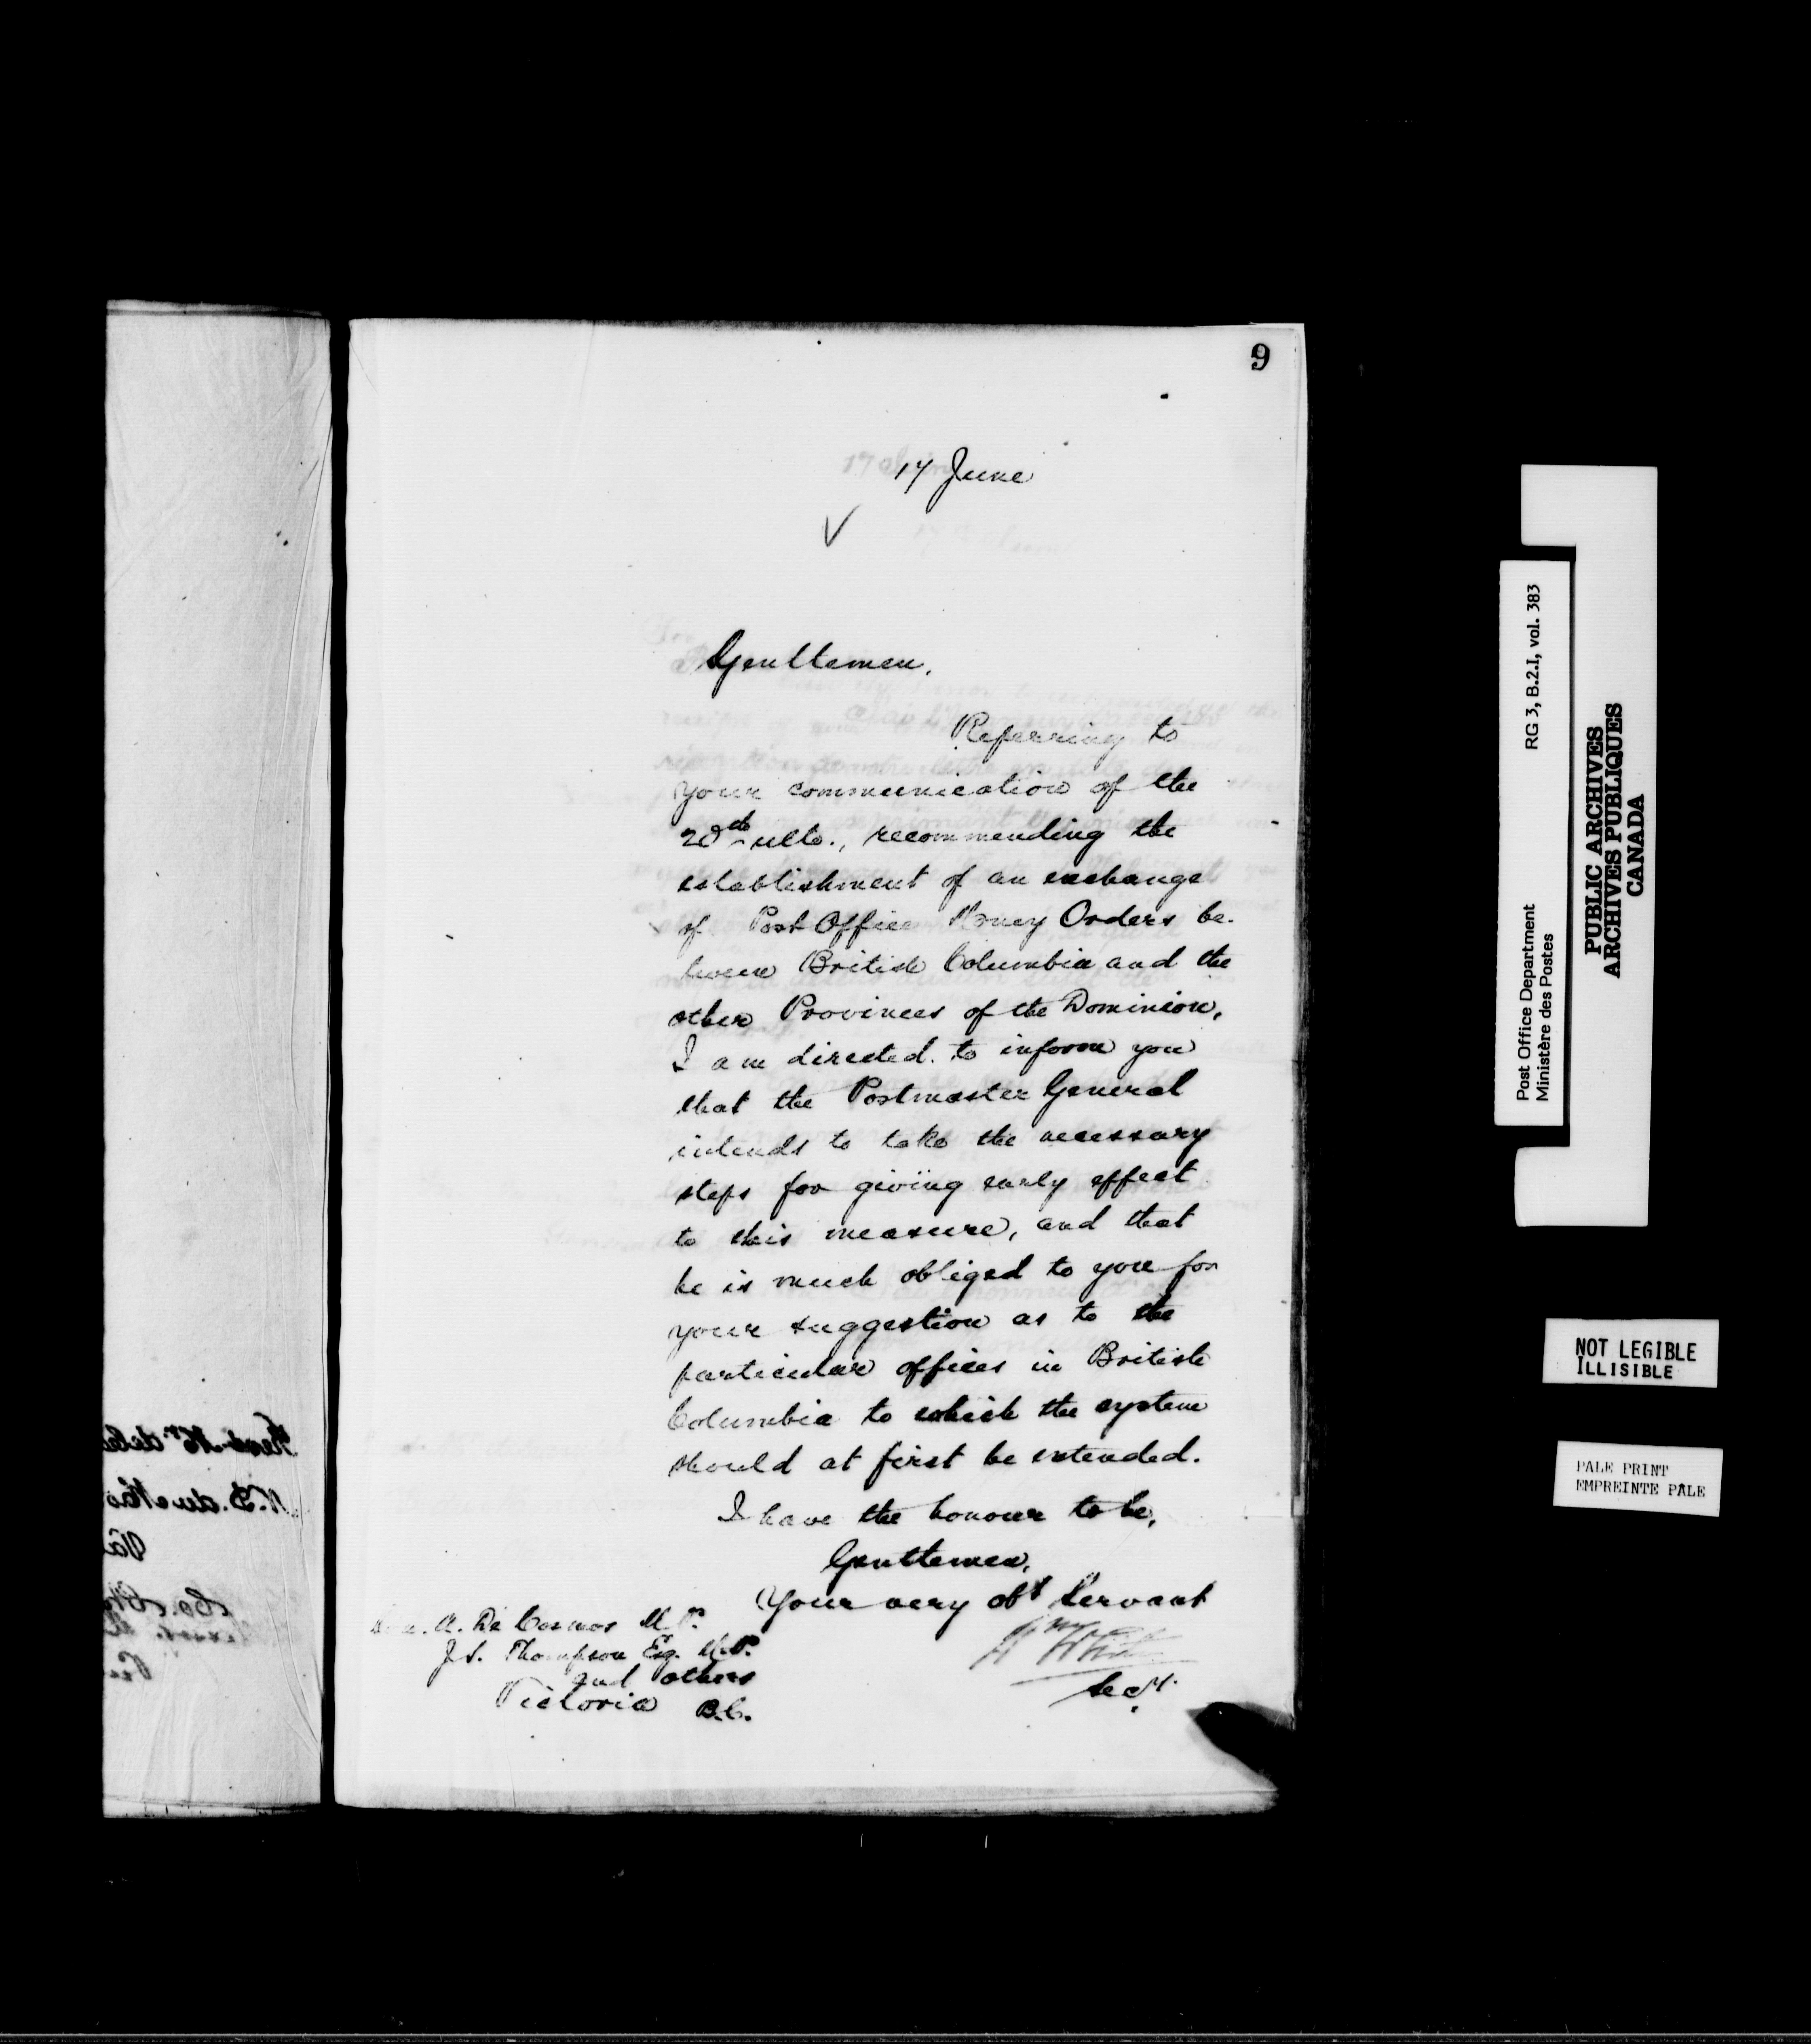 9
17 June
Gentlemen,
Referring to
your communication of the
20th ulto., recommending the
establishment of an exchange
of Post Office Money Orders be-
tween British Columbia and the
other Provinces of the Dominion,
I am directed to inform you
that the Postmaster General
intends to take the necessary
steps for giving early effect
to this measure, and that
he is much obliged to you for
your suggestion as to the
particular offices in British
Columbia to which the system
should at first be extended.
I have the honour to be,
Gentlemen,
Your very obt Servant
Secy.
A. De Cosmos M.P.
J.S. Thompson Esq. M.P.
and others
Victoria B.C.
Post Office Department RG 3, B.2.I, vol. 383
Ministère des Postes
PUBLIC ARCHIVES
ARCHIVES PUBLIQUES
CANADA
NOT LEGIBLE
ILLISIBLE
PALE PRINT
EMPREINTE PÂLE